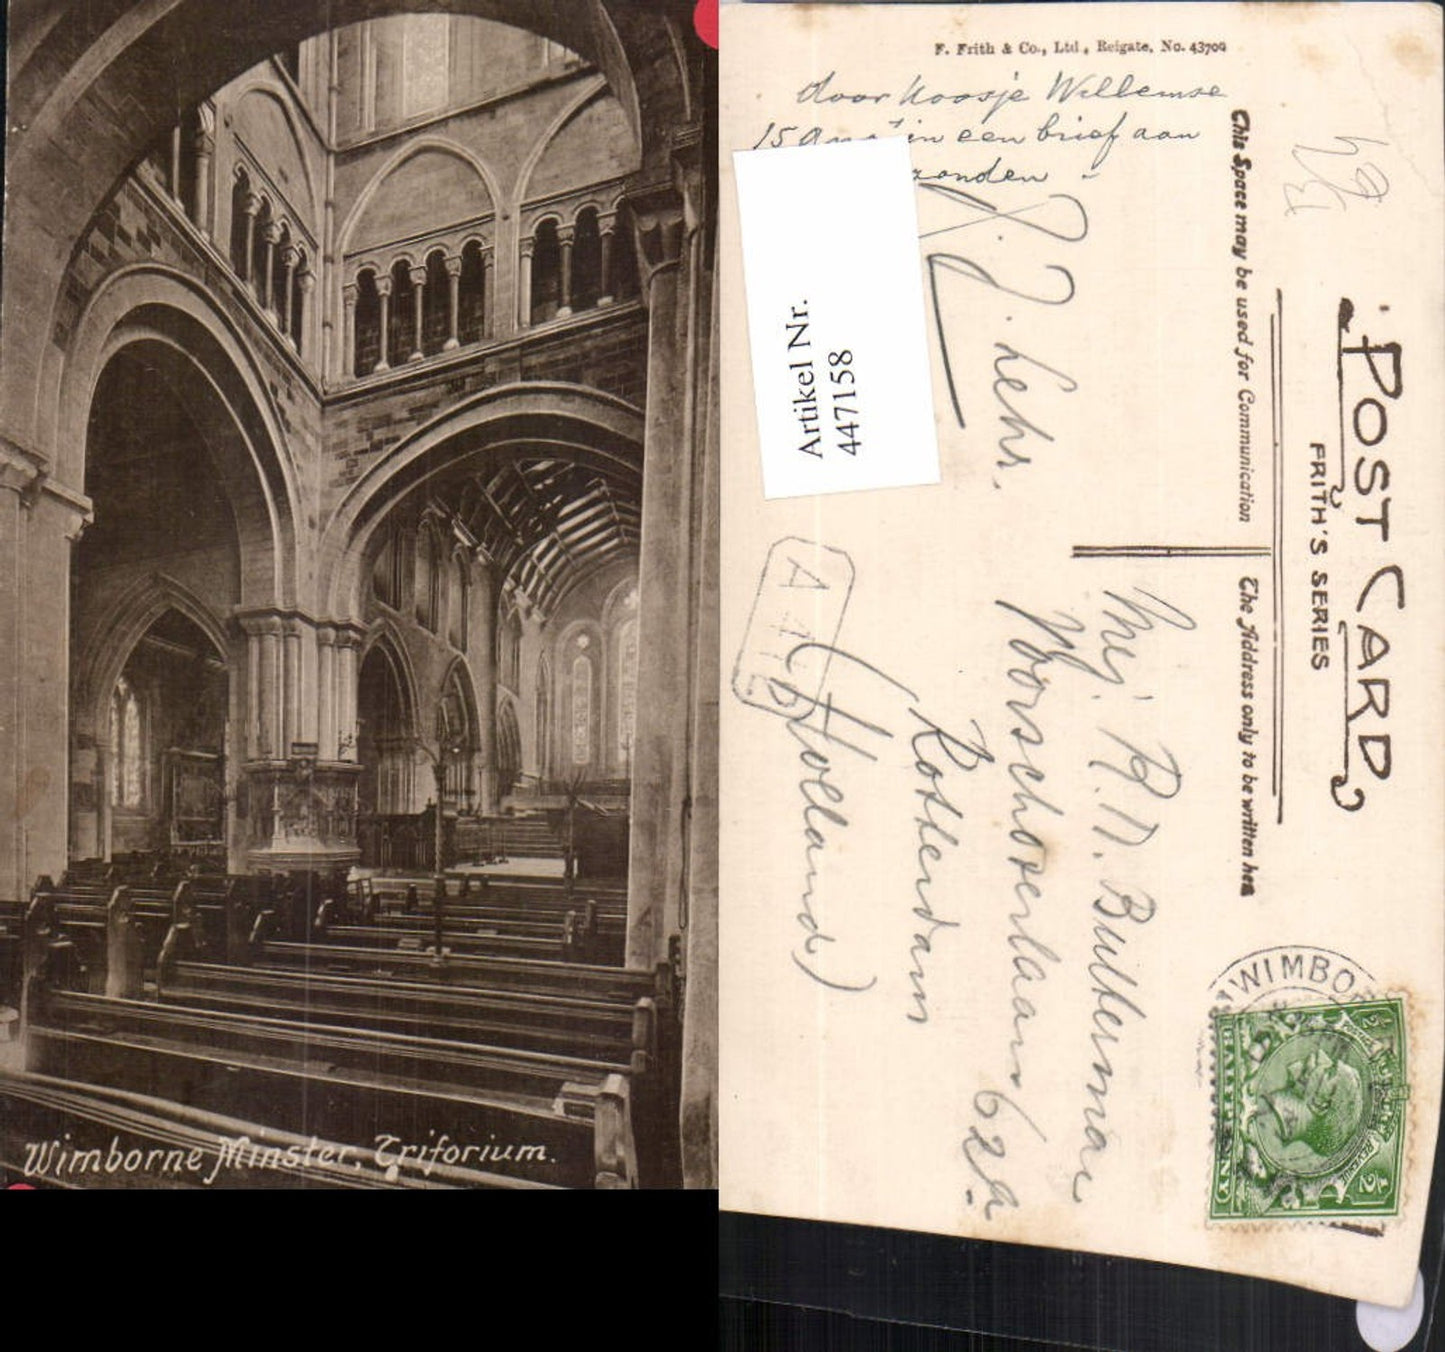 Wimborne Minster, Triforium.
F. Frith & Co., Ltd., Reigate, No. 43700
door Koosje Willemse
15 in een brief aan
zonden -
Artikel Nr.
447158
POST CARD
FRITH'S SERIES
This Space may be used for Communication
The Address only to be written here
J. Lehr.
Mej. R. N. Buitherman
Voorschoterlaan 62a.
Rotterdam
(Holland)
WIMBO
HALFPENNY
½
½